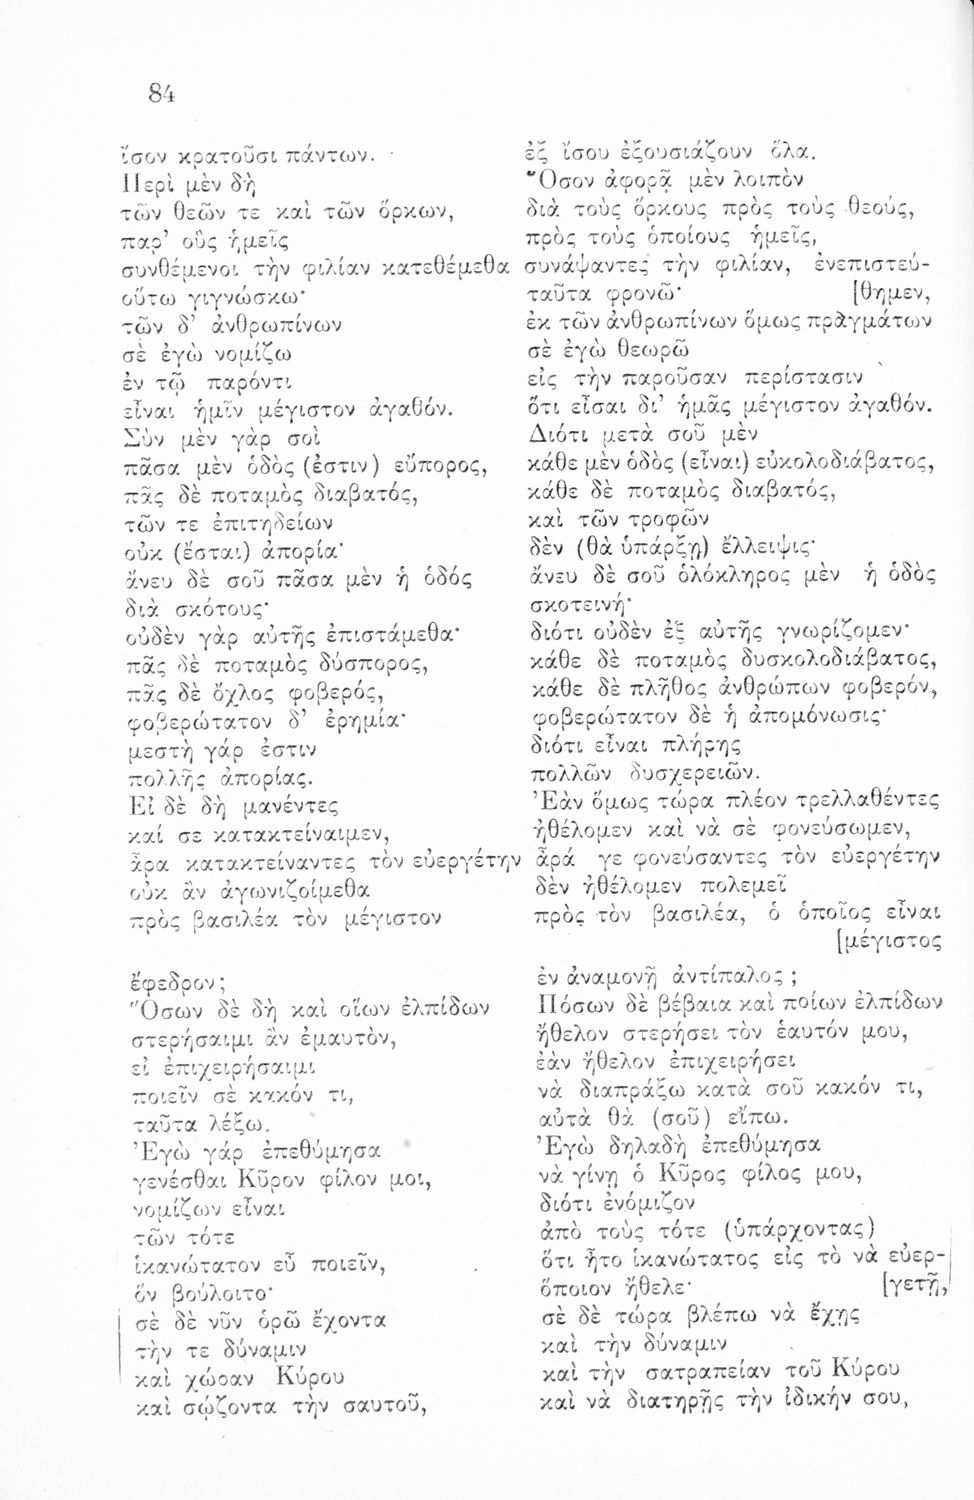 84
ἴσον κρατοῦσι πάντων.
Περὶ μὲν δὴ
τῶν θεῶν τε καὶ τῶν ὅρκων,
παρ’ οὓς ἡμεῖς
συνθέμενοι τὴν φιλίαν κατεθέμεθα
οὕτω γιγνώσκω·
τῶν δ’ ἀνθρωπίνων
σὲ ἐγὼ νομίζω
ἐν τῷ παρόντι
εἶναι ἡμῖν μέγιστον ἀγαθόν.
Σὺν μὲν γὰρ σοὶ
πᾶσα μὲν ὁδὸς (ἐστιν) εὔπορος,
πᾶς δὲ ποταμὸς διαβατός,
τῶν τε ἐπιτηδείων
οὐκ (ἔσται) ἀπορία·
ἄνευ δὲ σοῦ πᾶσα μὲν ἡ ὁδός
διὰ σκότους·
οὐδὲν γὰρ αὐτῆς ἐπιστάμεθα·
πᾶς δὲ ποταμὸς δύσπορος,
πᾶς δὲ ὄχλος φοβερός,
φοβερώτατον δ’ ἐρημία·
μεστὴ γάρ ἐστιν
πολλῆς ἀπορίας.
Εἰ δὲ δὴ μανέντες
καί σε κατακτείναιμεν,
ἆρα κατακτείναντες τὸν εὐεργέτην
οὐκ ἂν ἀγωνιζοίμεθα
πρὸς βασιλέα τὸν μέγιστον
ἔφεδρον;
Ὅσων δὲ δὴ καὶ οἵων ἐλπίδων
στερήσαιμι ἂν ἐμαυτὸν,
εἰ ἐπιχειρήσαιμι
ποιεῖν σὲ κακόν τι,
ταῦτα λέξω.
Ἐγὼ γάρ ἐπεθύμησα
γενέσθαι Κῦρον φίλον μοι,
νομίζων εἶναι
τῶν τότε
ἱκανώτατον εὖ ποιεῖν,
ὃν βούλοιτο·
σὲ δὲ νῦν ὁρῶ ἔχοντα
τήν τε δύναμιν
καὶ χώραν Κύρου
καὶ σῴζοντα τὴν σαυτοῦ,
ἐξ ἴσου ἐξουσιάζουν ὅλα.
Ὅσον ἀφορᾷ μὲν λοιπὸν
διὰ τοὺς ὅρκους πρὸς τοὺς θεούς,
πρὸς τοὺς ὁποίους ἡμεῖς,
συνάψαντες τὴν φιλίαν, ἐνεπιστεύ-
ταῦτα φρονῶ· [θημεν,
ἐκ τῶν ἀνθρωπίνων ὅμως πραγμάτων
σὲ ἐγὼ θεωρῶ
εἰς τὴν παροῦσαν περίστασιν
ὅτι εἶσαι δι’ ἡμᾶς μέγιστον ἀγαθόν.
Διότι μετὰ σοῦ μὲν
κάθε μὲν ὁδὸς (εἶναι) εὐκολοδιάβατος,
κάθε δὲ ποταμὸς διαβατός,
καὶ τῶν τροφῶν
δὲν (θὰ ὑπάρξῃ) ἔλλειψις·
ἄνευ δὲ σοῦ ὁλόκληρος μὲν ἡ ὁδὸς
σκοτεινή·
διότι οὐδὲν ἐξ αὐτῆς γνωρίζομεν·
κάθε δὲ ποταμὸς δυσκολοδιάβατος,
κάθε δὲ πλῆθος ἀνθρώπων φοβερόν,
φοβερώτατον δὲ ἡ ἀπομόνωσις·
διότι εἶναι πλήρης
πολλῶν δυσχερειῶν.
Ἐὰν ὅμως τώρα πλέον τρελλαθέντες
ἠθέλομεν καὶ νὰ σὲ φονεύσωμεν,
ἆρά γε φονεύσαντες τὸν εὐεργέτην
δὲν ἠθέλομεν πολεμεῖ
πρὸς τὸν βασιλέα, ὁ ὁποῖος εἶναι
[μέγιστος
ἐν ἀναμονῇ ἀντίπαλος ;
Πόσων δὲ βέβαια καὶ ποίων ἐλπίδων
ἤθελον στερήσει τὸν ἑαυτόν μου,
ἐὰν ἤθελον ἐπιχειρήσει
νὰ διαπράξω κατὰ σοῦ κακόν τι,
αὐτὰ θὰ (σοῦ) εἴπω.
Ἐγὼ δηλαδὴ ἐπεθύμησα
νὰ γίνῃ ὁ Κῦρος φίλος μου,
διότι ἐνόμιζον
ἀπὸ τοὺς τότε (ὑπάρχοντας)
ὅτι ἦτο ἱκανώτατος εἰς τὸ νὰ εὐερ-
ὅποιον ἤθελε· [γετῇ,
σὲ δὲ τώρα βλέπω νὰ ἔχῃς
καὶ τὴν δύναμιν
καὶ τὴν σατραπείαν τοῦ Κύρου
καὶ νὰ διατηρῇς τὴν ἰδικήν σου,